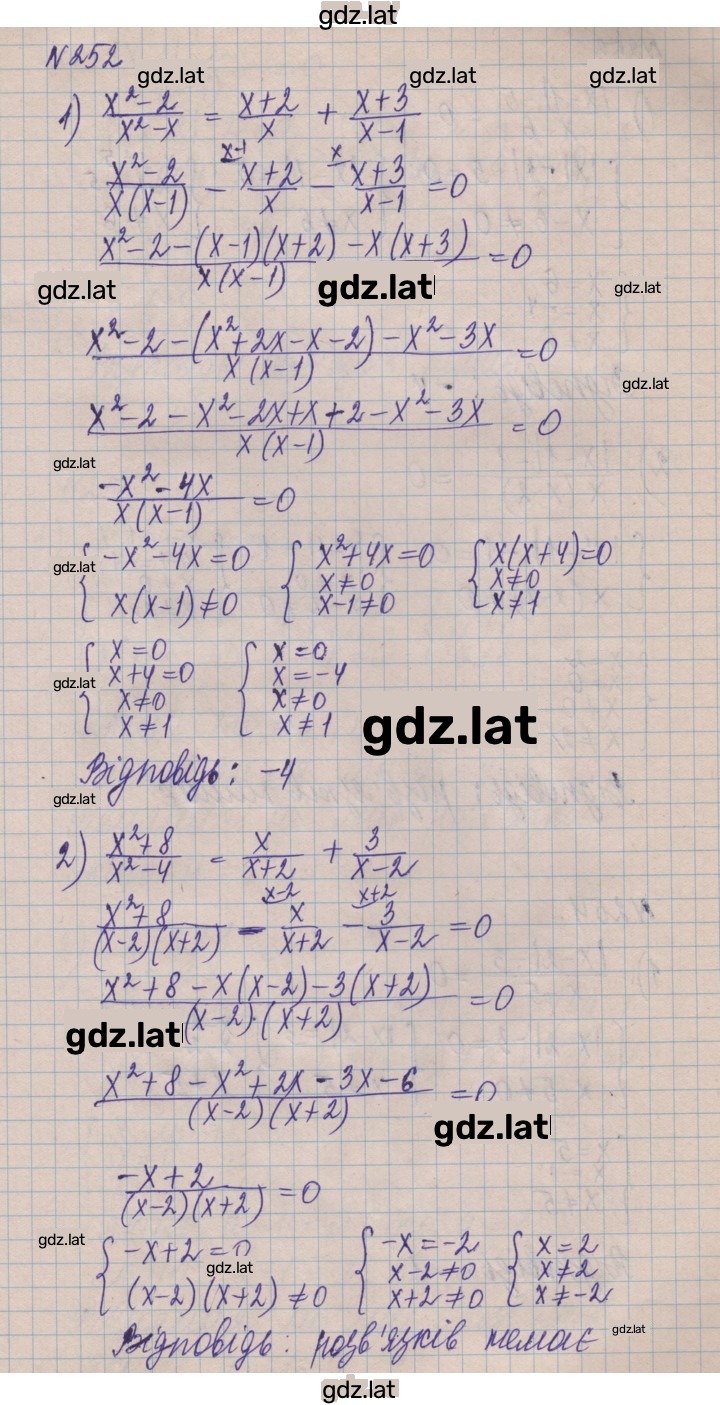 gdz.lat
N252
gdz.lat gdz.lat gdz.lat
1) (x²-2)/(x²-x) = (x+2)/x + (x+3)/(x-1)
(x²-2)/(x(x-1)) - ˣ⁻¹(x+2)/x - ˣ(x+3)/(x-1) = 0
(x²-2-(x-1)(x+2)-x(x+3))/(x(x-1)) = 0
gdz.lat gdz.lat gdz.lat
(x²-2-(x²+2x-x-2)-x²-3x)/(x(x-1)) = 0
gdz.lat
(x²-2-x²-2x+x+2-x²-3x)/(x(x-1)) = 0
gdz.lat
(-x²-4x)/(x(x-1)) = 0
gdz.lat
{ -x²-4x=0 { x²+4x=0 { x(x+4)=0
x(x-1)≠0 x≠0 x≠0
x-1≠0 x≠1
{ x=0 { x=0
x+4=0 x=-4
gdz.lat
x≠0 x≠0
x≠1 x≠1
gdz.lat
Відповідь: -4
gdz.lat
2) (x²+8)/(x²-4) = x/(x+2) + 3/(x-2)
(x²+8)/((x-2)(x+2)) - ˣ⁻²x/(x+2) - ˣ⁺²3/(x-2) = 0
(x²+8-x(x-2)-3(x+2))/((x-2)·(x+2)) = 0
gdz.lat
(x²+8-x²+2x-3x-6)/((x-2)(x+2)) = 0
gdz.lat
(-x+2)/((x-2)(x+2)) = 0
gdz.lat
{ -x+2=0 { -x=-2 { x=2
gdz.lat
(x-2)(x+2)≠0 x-2≠0 x≠2
x+2≠0 x≠-2
Відповідь: розв'язків немає
gdz.lat
gdz.lat